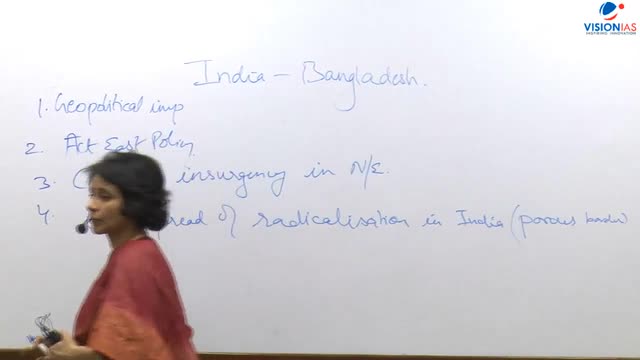 VISIONIAS
INSPIRING INNOVATION
India - Bangladesh.
1. Geopolitical imp
2. Act East Policy
3. insurgency in N/E.
4. of radicalisation in India (porous border)